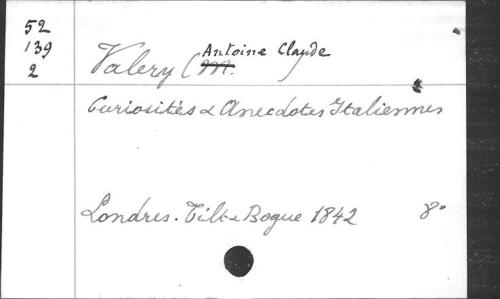 52
139
2
Antoine Claude
Valery (M.)
Curiosités & Anecdotes Italiennes
Londres. Tilt & Bogue 1842 8°